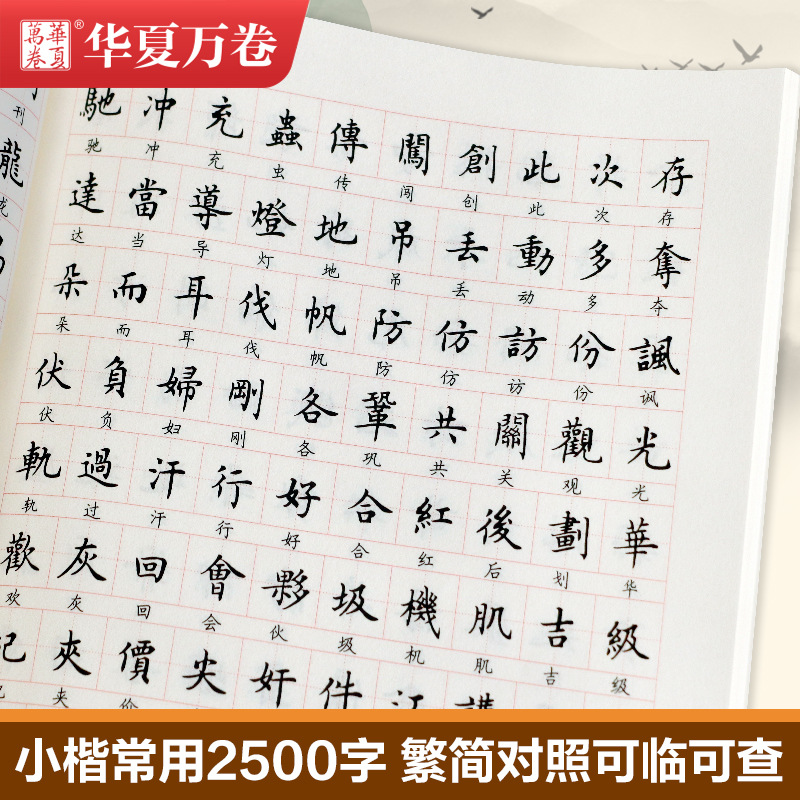 華夏萬卷® 华夏万卷
刊
馳 冲 充 蟲 傳 闖 創 此 次 存
驰 冲 充 虫 传 闯 创 此 次 存
龍
龙
達 當 導 燈 地 吊 丢 動 多 奪
达 当 导 灯 地 吊 丢 动 多 夺
朵 而 耳 伐 帆 防 仿 訪 份 諷
朵 而 耳 伐 帆 防 仿 访 份 讽
伏 負 婦 剛 各 鞏 共 關 觀 光
伏 负 妇 刚 各 巩 共 关 观 光
軌 過 汗 行 好 合 紅 後 劃 華
轨 过 汗 行 好 合 红 后 划 华
歡 灰 回 會 夥 圾 機 肌 吉 級
欢 灰 回 会 伙 圾 机 肌 吉 级
夾 價 尖 奸 件 江
夹 价
小楷常用2500字 繁简对照可临可查